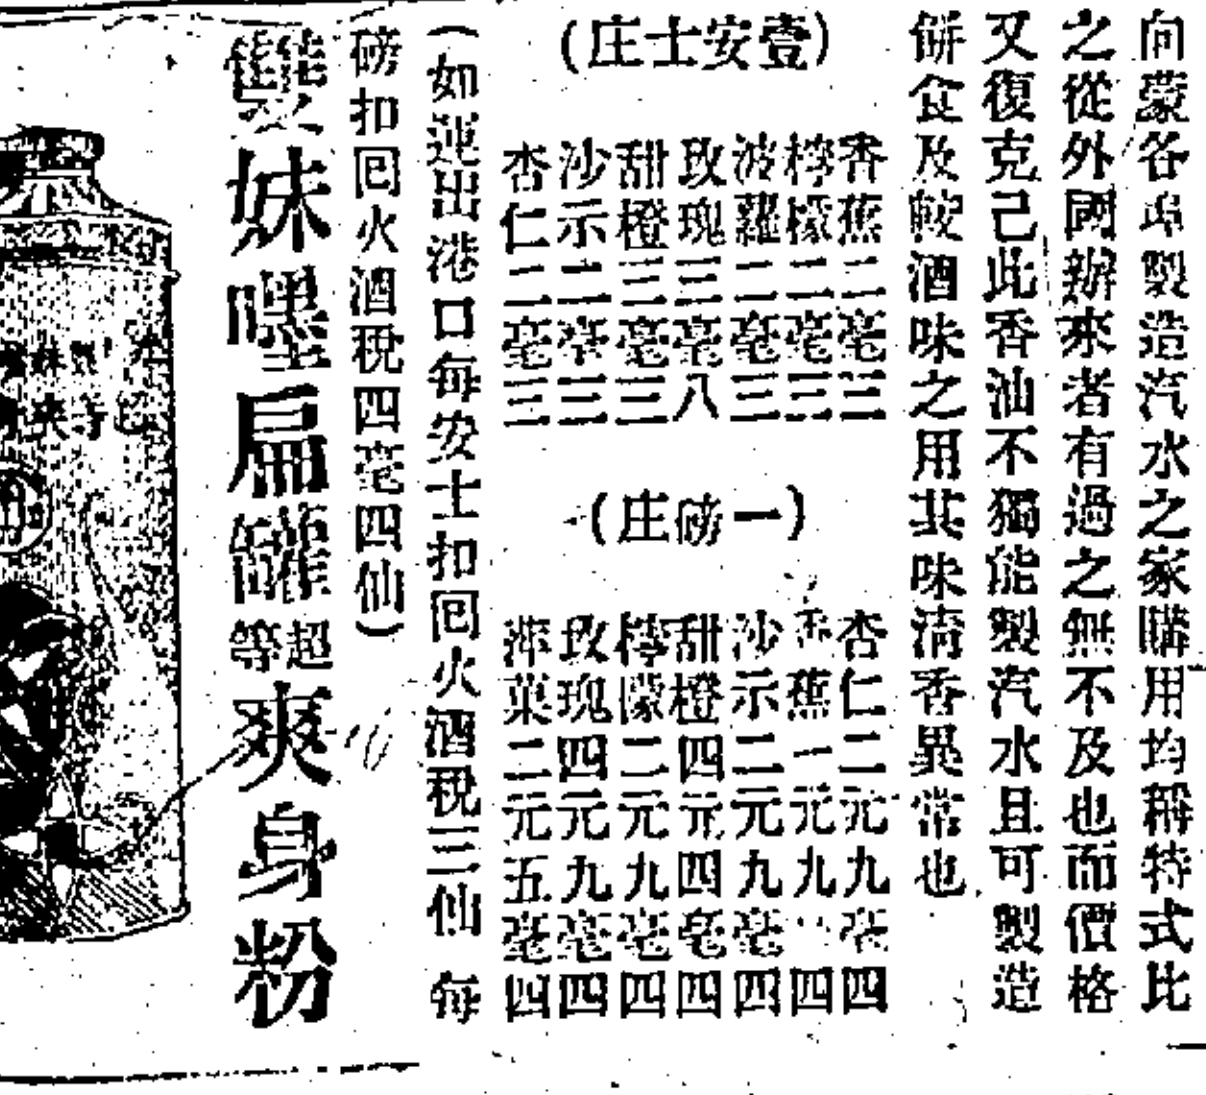 向蒙各埠製造汽水之家購用均稱特式比
之從外國辦來者有過之無不及也而價格
又復克己此香油不獨能製汽水且可製造
餅食及較酒味之用其味淸香異常也
(壹安士庄)
香蕉二毫三
檸檬二毫三
波蘿二毫三
玫瑰三毫八
甜橙三毫三
沙示二毫三
杏仁二毫三
(一磅庄)
杏仁二元九毫四
蕉一元九四
沙示二元九毫四
甜橙四元四毫四
檸檬二元九毫四
玫瑰四元九毫四
菓二元五毫四
(如運出港口每安士扣囘火酒稅三仙 每
磅扣囘火酒稅四毫四仙)
雙妹嚜扁罐超等爽身粉